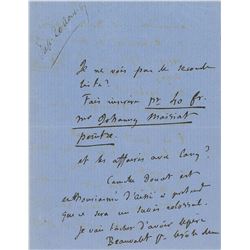 Je ne vois pas de seconde
liste?
Fais inscrire pr 40 fr.
mr Johanny Maisiat
peintre
et les affaires avec Lévy?
Camille Doucet est
enthousiasmé d'ici à présent
que ce sera un succès colossal.
Je vais tâcher d'avoir
Beauvalet pr